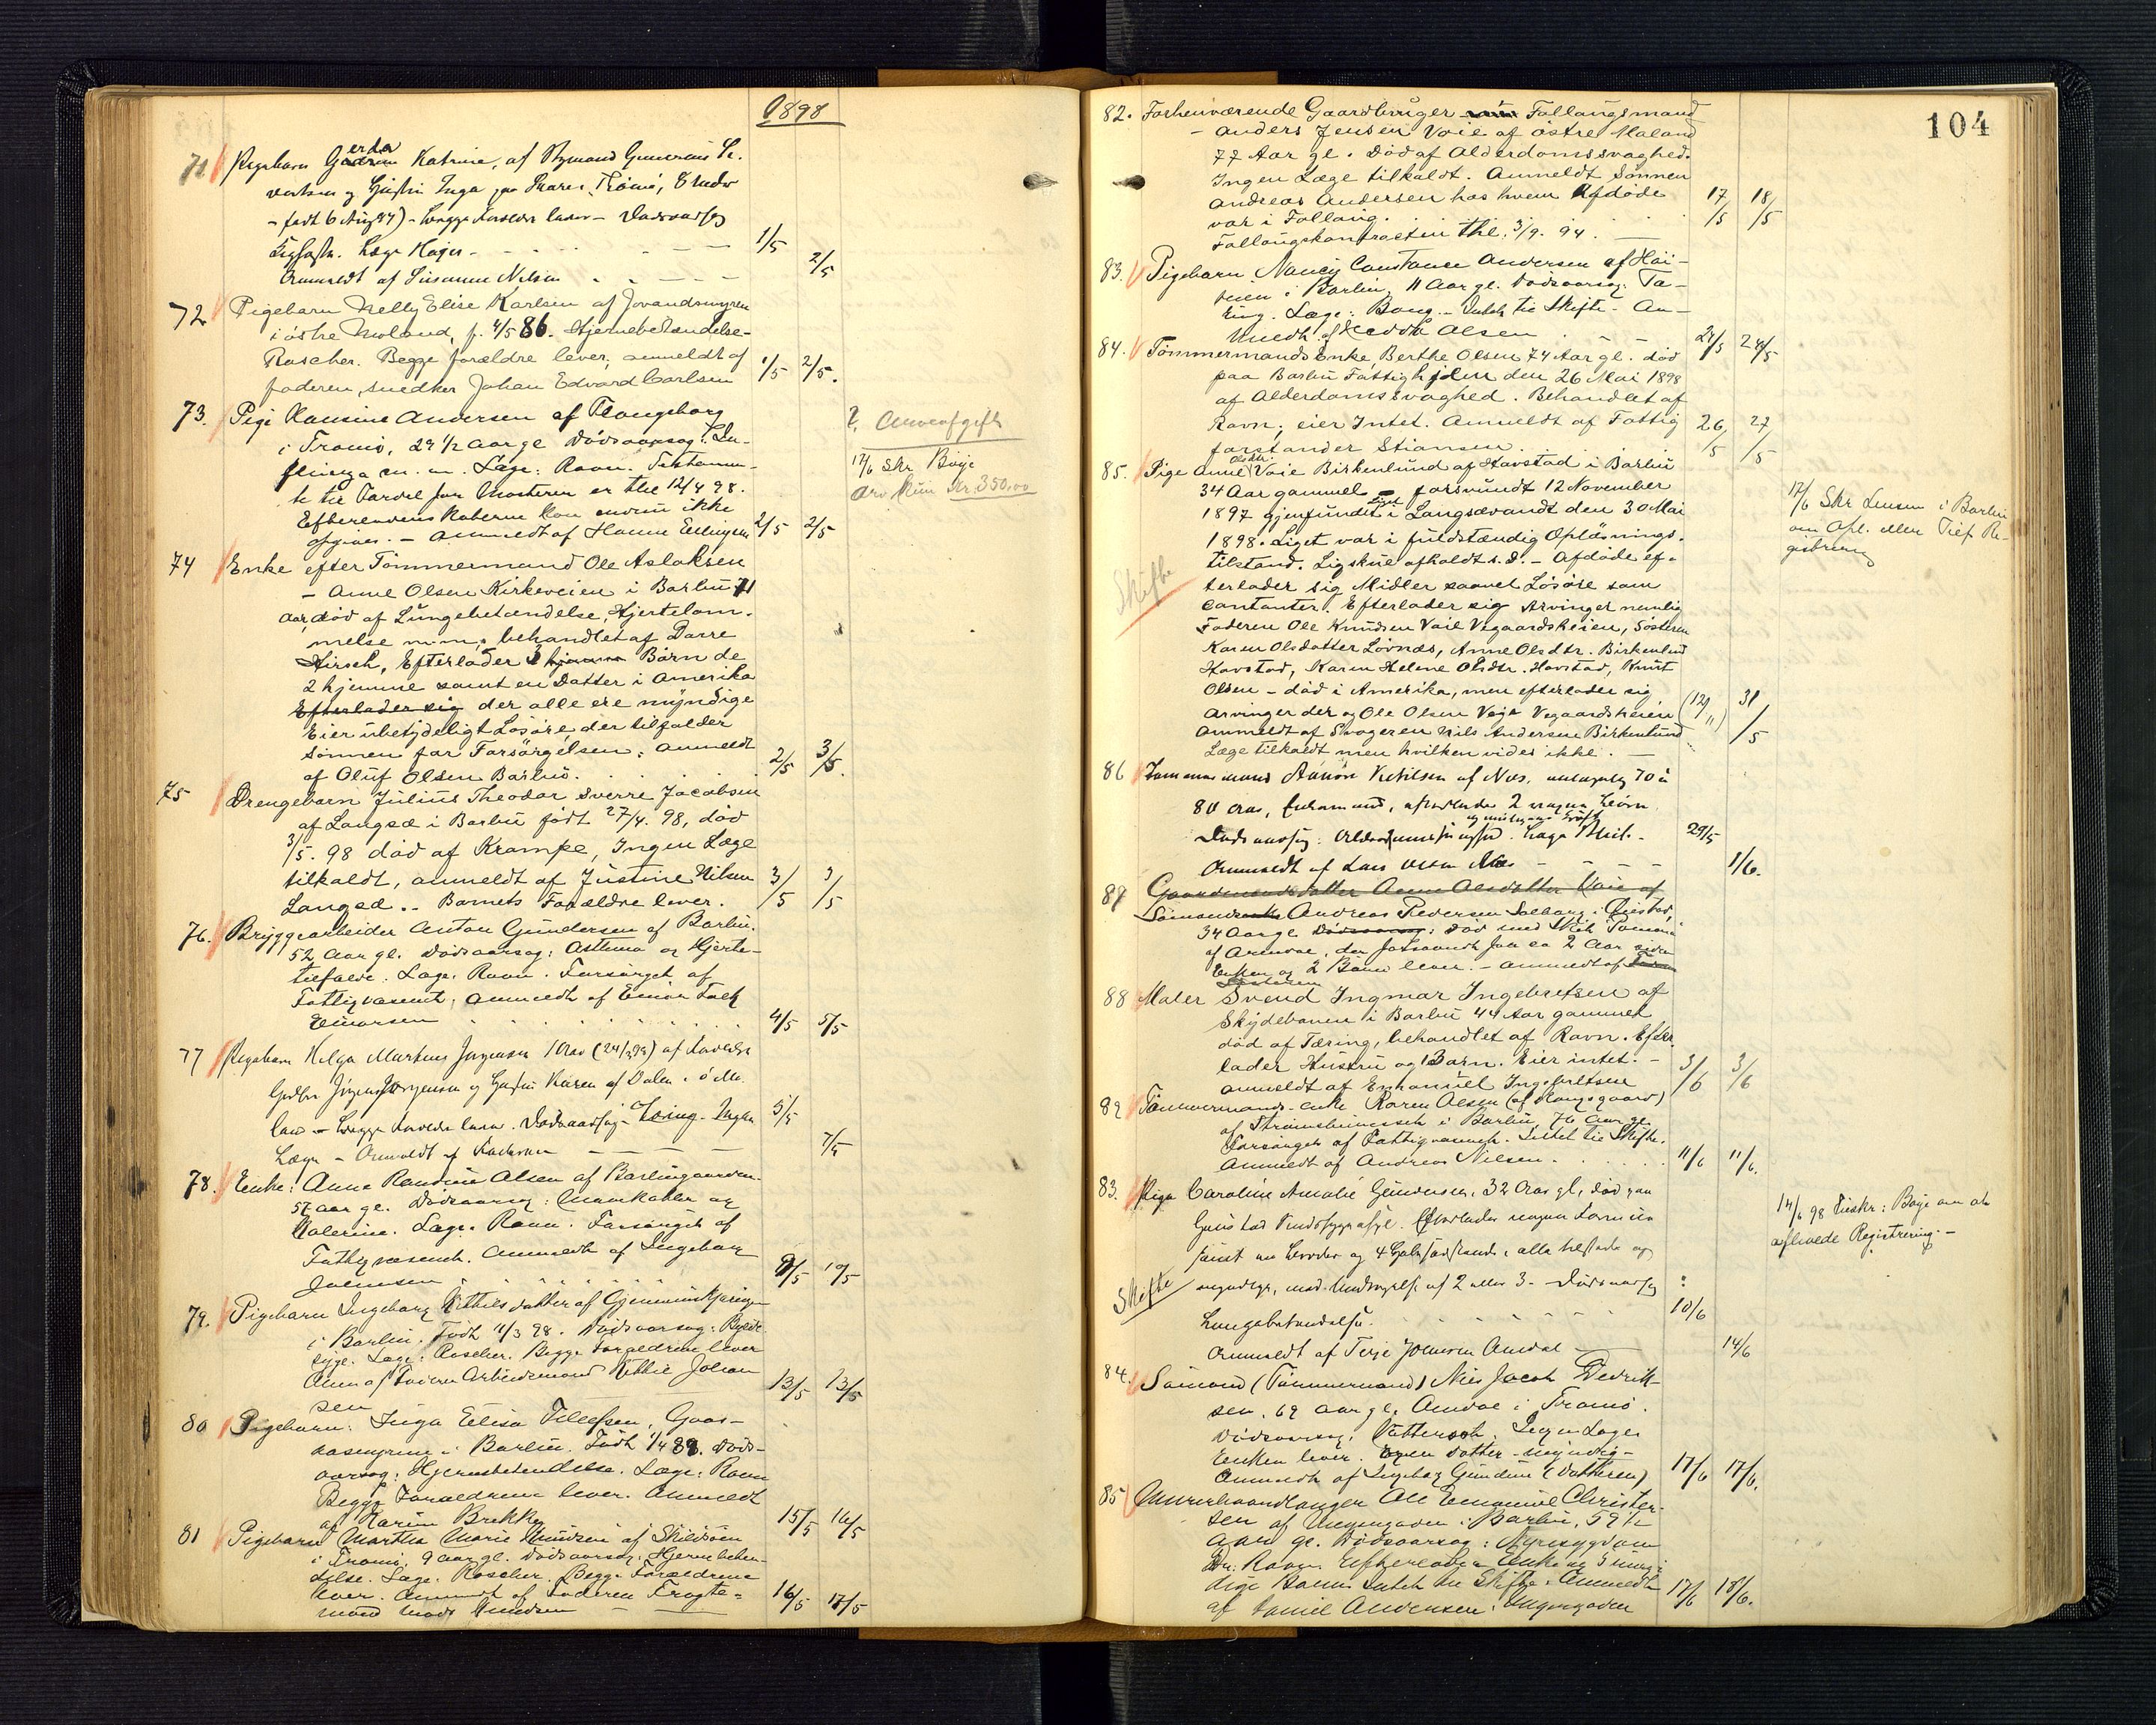 1898
71 Pigebarn Gerda Katrine, af Styrmand Gunerius Si-
vertsen og Hustru Inga paa Tromø,
- født 6 Aug 97) - begge Forældre lever - Dødsaarsag
Læge Høyer -
Anmeldt af Susanne Nilsen 1/5 2/5
72 Pigebarn Nelly Elise Karlsen af Jovandsmyren
i østre Moland, f. 4/5 86. Hjernebetændelse -
Rascher. Begge forældre lever, anmeldt af
faderen, snedker Johan Edvard Carlsen 1/5 2/5.
73. Pige Hansine Andersen af
i Tromø, 29 1/2 aar gl Dødsaarsag: In-
fluenza m. m. Læge: Ravn. Testamen-
te til Fordel for Mosteren er thl 12/4 98.
Efterladenskaberne kan endnu ikke
opgives. - Anmeldt af Hanna Ellingsen 2/5 2/5
? Arveafgift
17/6 Skr Bøije
Arv kun Kr. 350,00
74 Enke efter Tømmermand Ole Aslaksen
- Anne Olsen Kirkeveien i Barbu 71
Aar, død af Lungebetændelse, Hjertelam-
melse m.m., behandlet af Darre
Hirsch, Efterlader 3 hjemme Børn de
2 hjemme samt en Datter i Amerika
Efterlader sig der alle ere myndige
Eier ubetydeligt Løsøre, der tilfalder
sønnen for Forsørgelsen: anmeldt
af Oluf Olsen Barbu. 2/5 3/5.
75 Drengebarn Julius Theodor Sverre Jacobsen
af Langsæ i Barbu født 27/4. 98, død
3/5. 98 død af Krampe, Ingen Læge
tilkaldt, anmeldt af Justine Nilsen
Langsæ.. Barnets Forældre lever. 3/5 3/5
76. Bryggearbeider Anton Gundersen af Barbu.
52 Aar gl. Dødsaarsag: Asthma og Hjerte-
tilfælde. Læge: Ravn. Forsørget af
Fattigvæsenet, anmeldt af Einar Falk
Einarsen 4/5 5/5
77 Pigebarn Helga Marthine Jørgensen 1 Aar (24/3 98) af Forældre
Jørgen Jørgensen og Hustru Karen af Dalen i ø Mo-
land - begge Forældre lever. Dødsaarsag - Tæring - Ingen
Læge - Anmeldt af Faderen 5/5 7/5
78. Enke: Anne Randine Olsen af Barbugaarden.
57 aar gl. Dødsaarsag: Mavekatarr og
Kolerine. Læge: Ravn. Forsørget af
Fattigvæsenet. Anmeldt af Ingeborg
Joensen 9/5 10/5
79. Pigebarn Ingeborg Kittilsdatter af
i Barbu. Født 11/3 98. Dødsaarsag:
syge. Læge: Rascher. Begge Forældrene lever
Anm af Faderen Arbeidsmand Kittil Johan
sen 13/5 13/5
80 Pigebarn: Inga Elisa Tellefsen, Gaas-
aasmyrene i Barbu. Født 1/4 88. Døds-
aarsag: Hjernebetændelse. Læge: Ravn
Begge Forældrene lever. Anmeldt
af Karin Brekke 15/5 16/5
81 Pigebarn Martha Marie Knudsen af Skilsøen
i Tromø, 9 aar gl. Dødsaarsag: Hjernebetæn-
delse. Læge: Rascher. Begge Forældrene
lever. Anmeldt af Faderen Fragte-
mand Mads Knudsen 16/5 17/5
104
82. Forhenværende Gaardbruger Follaugsmand
- Anders Jensen Voie af østre Moland
77 Aar gl. Død af Alderdomssvaghed.
Ingen Læge tilkaldt. Anmeldt Sønnen
Andreas Andersen hos hvem Afdøde
var i Follaug.
Follaugskontrakten thl. 3/9. 94. 17/5 18/5
83. Pigebarn Nancy Constance Andersen af Høi-
veien i Barbu, 11 Aar gl. Dødsaarsag: Tæ-
ring. Læge: Bang. - Intet til Skifte - An-
meldt af Hedda Olsen 24/5 24/5
84. Tømmermands Enke, Berthe Olsen 74 Aar gl. død
paa Barbu Fattighjem den 26 Mai 1898
af Alderdomssvaghed. Behandlet af
Ravn, eier Intet. Anmeldt af Fattig
forstander Stiansen 26/5 27/5
85. Pige Anne Olsdtr. Voie Birkenlund af Havstad i Barbu
34 Aar gammel - forsvundt 12 November
1897 gjenfundet Liget i Langsævandt den 30 Mai
1898. Liget var i fuldstændig Opløsnings-
tilstand. Ligskue afholdt s. D. - Afdøde ef-
terlader sig Midler saavel Løsøre som
contanter. Efterlader sig Arvinger nemlig
Faderen Ole Knudsen Voie Vegaardsheien, Søsteren
Karen Olsdatter Løvnæs, Anne Olsdtr. Birkenlund
Havstad, Karen Helene Olsdtr. Havstad, Knut
Olsen - død i Amerika, men efterlader sig
Arvinger der og Ole Olsen Veje Vegaardsheien
Anmeldt af Svogeren Nils Andersen Birkenlund
Læge tilkaldt men hvilken vides ikke. (12/11) 31/5
Skifte
17/6 Skr Lensm i Barbu
om Opl. eller Tilf Re-
gistrering
86 Tømmermand Aanon Ketilsen af Næs, antagelig 70 à
80 Aar, Enkemand, efterlader 2 Børn
Dødsaarsag: Alderdomssvaghed. Læge Thiis -
Anmeldt af Lars Olsen Næs 29/5 1/6.
87 Gaardmandsdatter Anne Olsdatter Voie af
Sømand Andreas Pedersen Solborg i
34 Aar gl. Dødsaarsag: Død med Skib Pomona
af Arendal, der forsvandt for ca 2 Aar siden
Enken og 2 Børn lever. - Anmeldt af
88 Maler Svend Ingmar Ingebretsen af
Skydebanen i Barbu 44 Aar gammel
død af Tæring, behandlet af Ravn. Efter
lader Hustru og 1 Barn. Eier intet. -
anmeldt af Emanuel Ingebretsen 3/6 3/6
89 Tømmermands-enke Karen Olsen (af Haugsgaard)
af Strømsbunessch i Barbu, 76 Aar gl.
Forsørget af Fattigvæsenet. Intet til Skifte.
Anmeldt af Andreas Nielsen. 11/6 11/6.
83. Pige Caroline Amalie Gundersen, 32 Aar gl, død paa
Gaustad Sindssygeasyl. Efterlader ingen Formue
samt en Broder og 4 Halvsødskende, alle tilstede og
myndige, med Undtagelse af 2 eller 3 - Dødsaarsag:
Lungebetændelse.
Anmeldt af Terje Joensen Amdal 10/6 14/6
Skifte
14/6 98 Tilskr: Bøije om at
afholde Registrering. -
84. Sømand (Tømmermand) Nils Jacob Didrik-
sen, 69 Aar gl, Amdal i Tromø.
Dødsaarsag: Vattersott. Ingen Læge
Enken lever. Egen Datter - myndig -
Anmeldt af Ingeborg Gundine (Datteren) 17/6 17/6.
85 Murerhaandlanger Ole Emanuel Christen-
sen af Myregaden i Barbu, 59 1/2
Aar gl. Dødsaarsag: Nyresygdom
Dr: Ravn. Efterlader Enke og 3 umyn-
dige Børn. Intet til Skifte. Anmeldt
af Daniel Andersen, Myregaden 17/6 18/6.